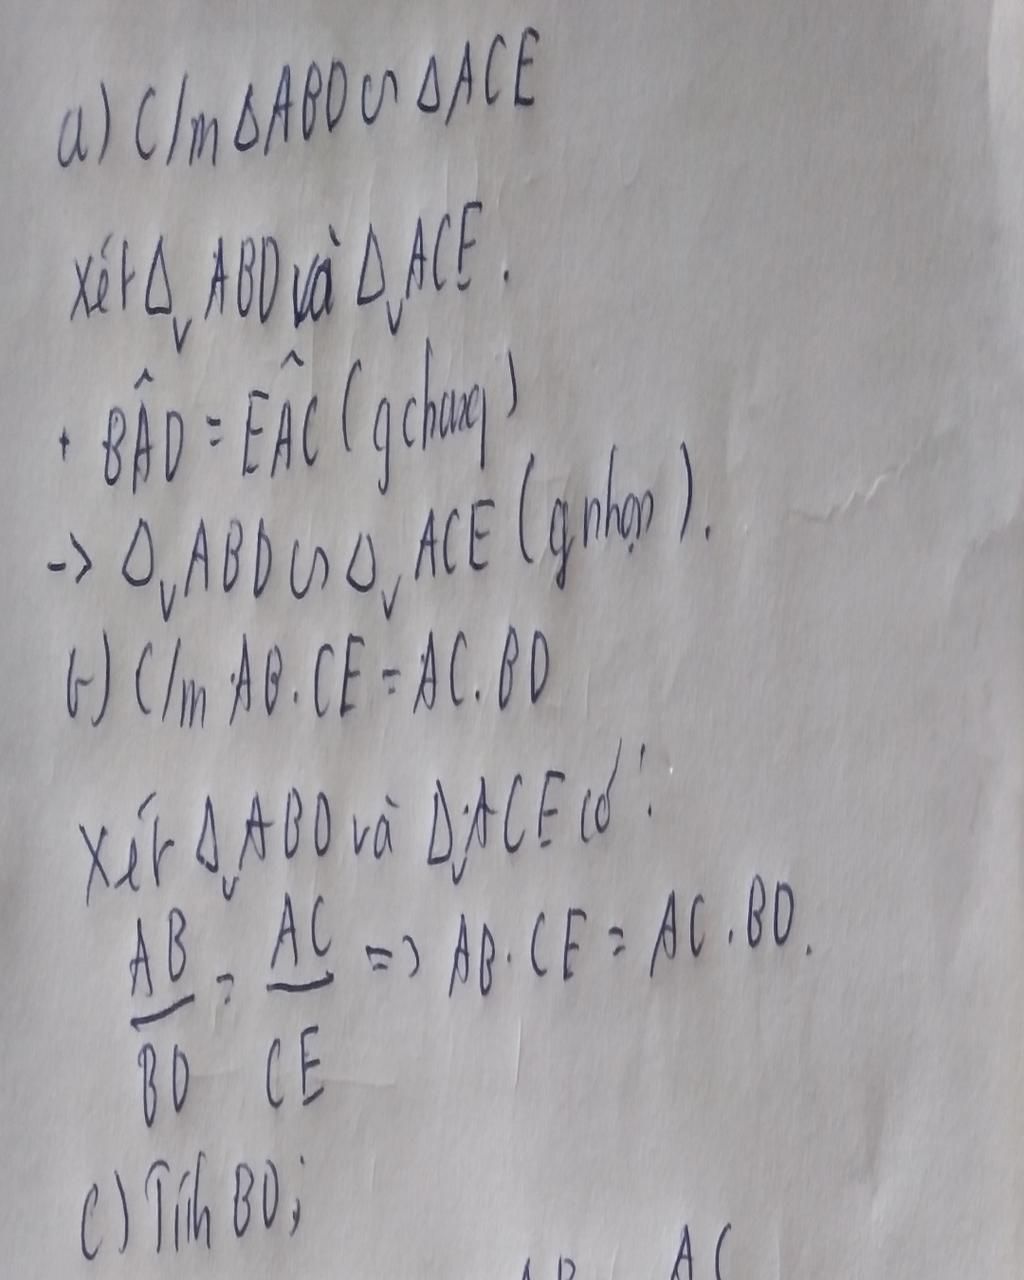 a) C/m ΔABD ∽ ΔACE
Xét Δv ABD và Δv ACE.
+ BÂD = EÂC (g chung)
-> Δv ABD ∽ Δv ACE (g nhọn).
b) C/m AB.CE = AC.BD
Xét Δv ABD và Δv ACE có:
AB/BD = AC/CE => AB.CE = AC.BD.
c) Tính BD;
AB AC